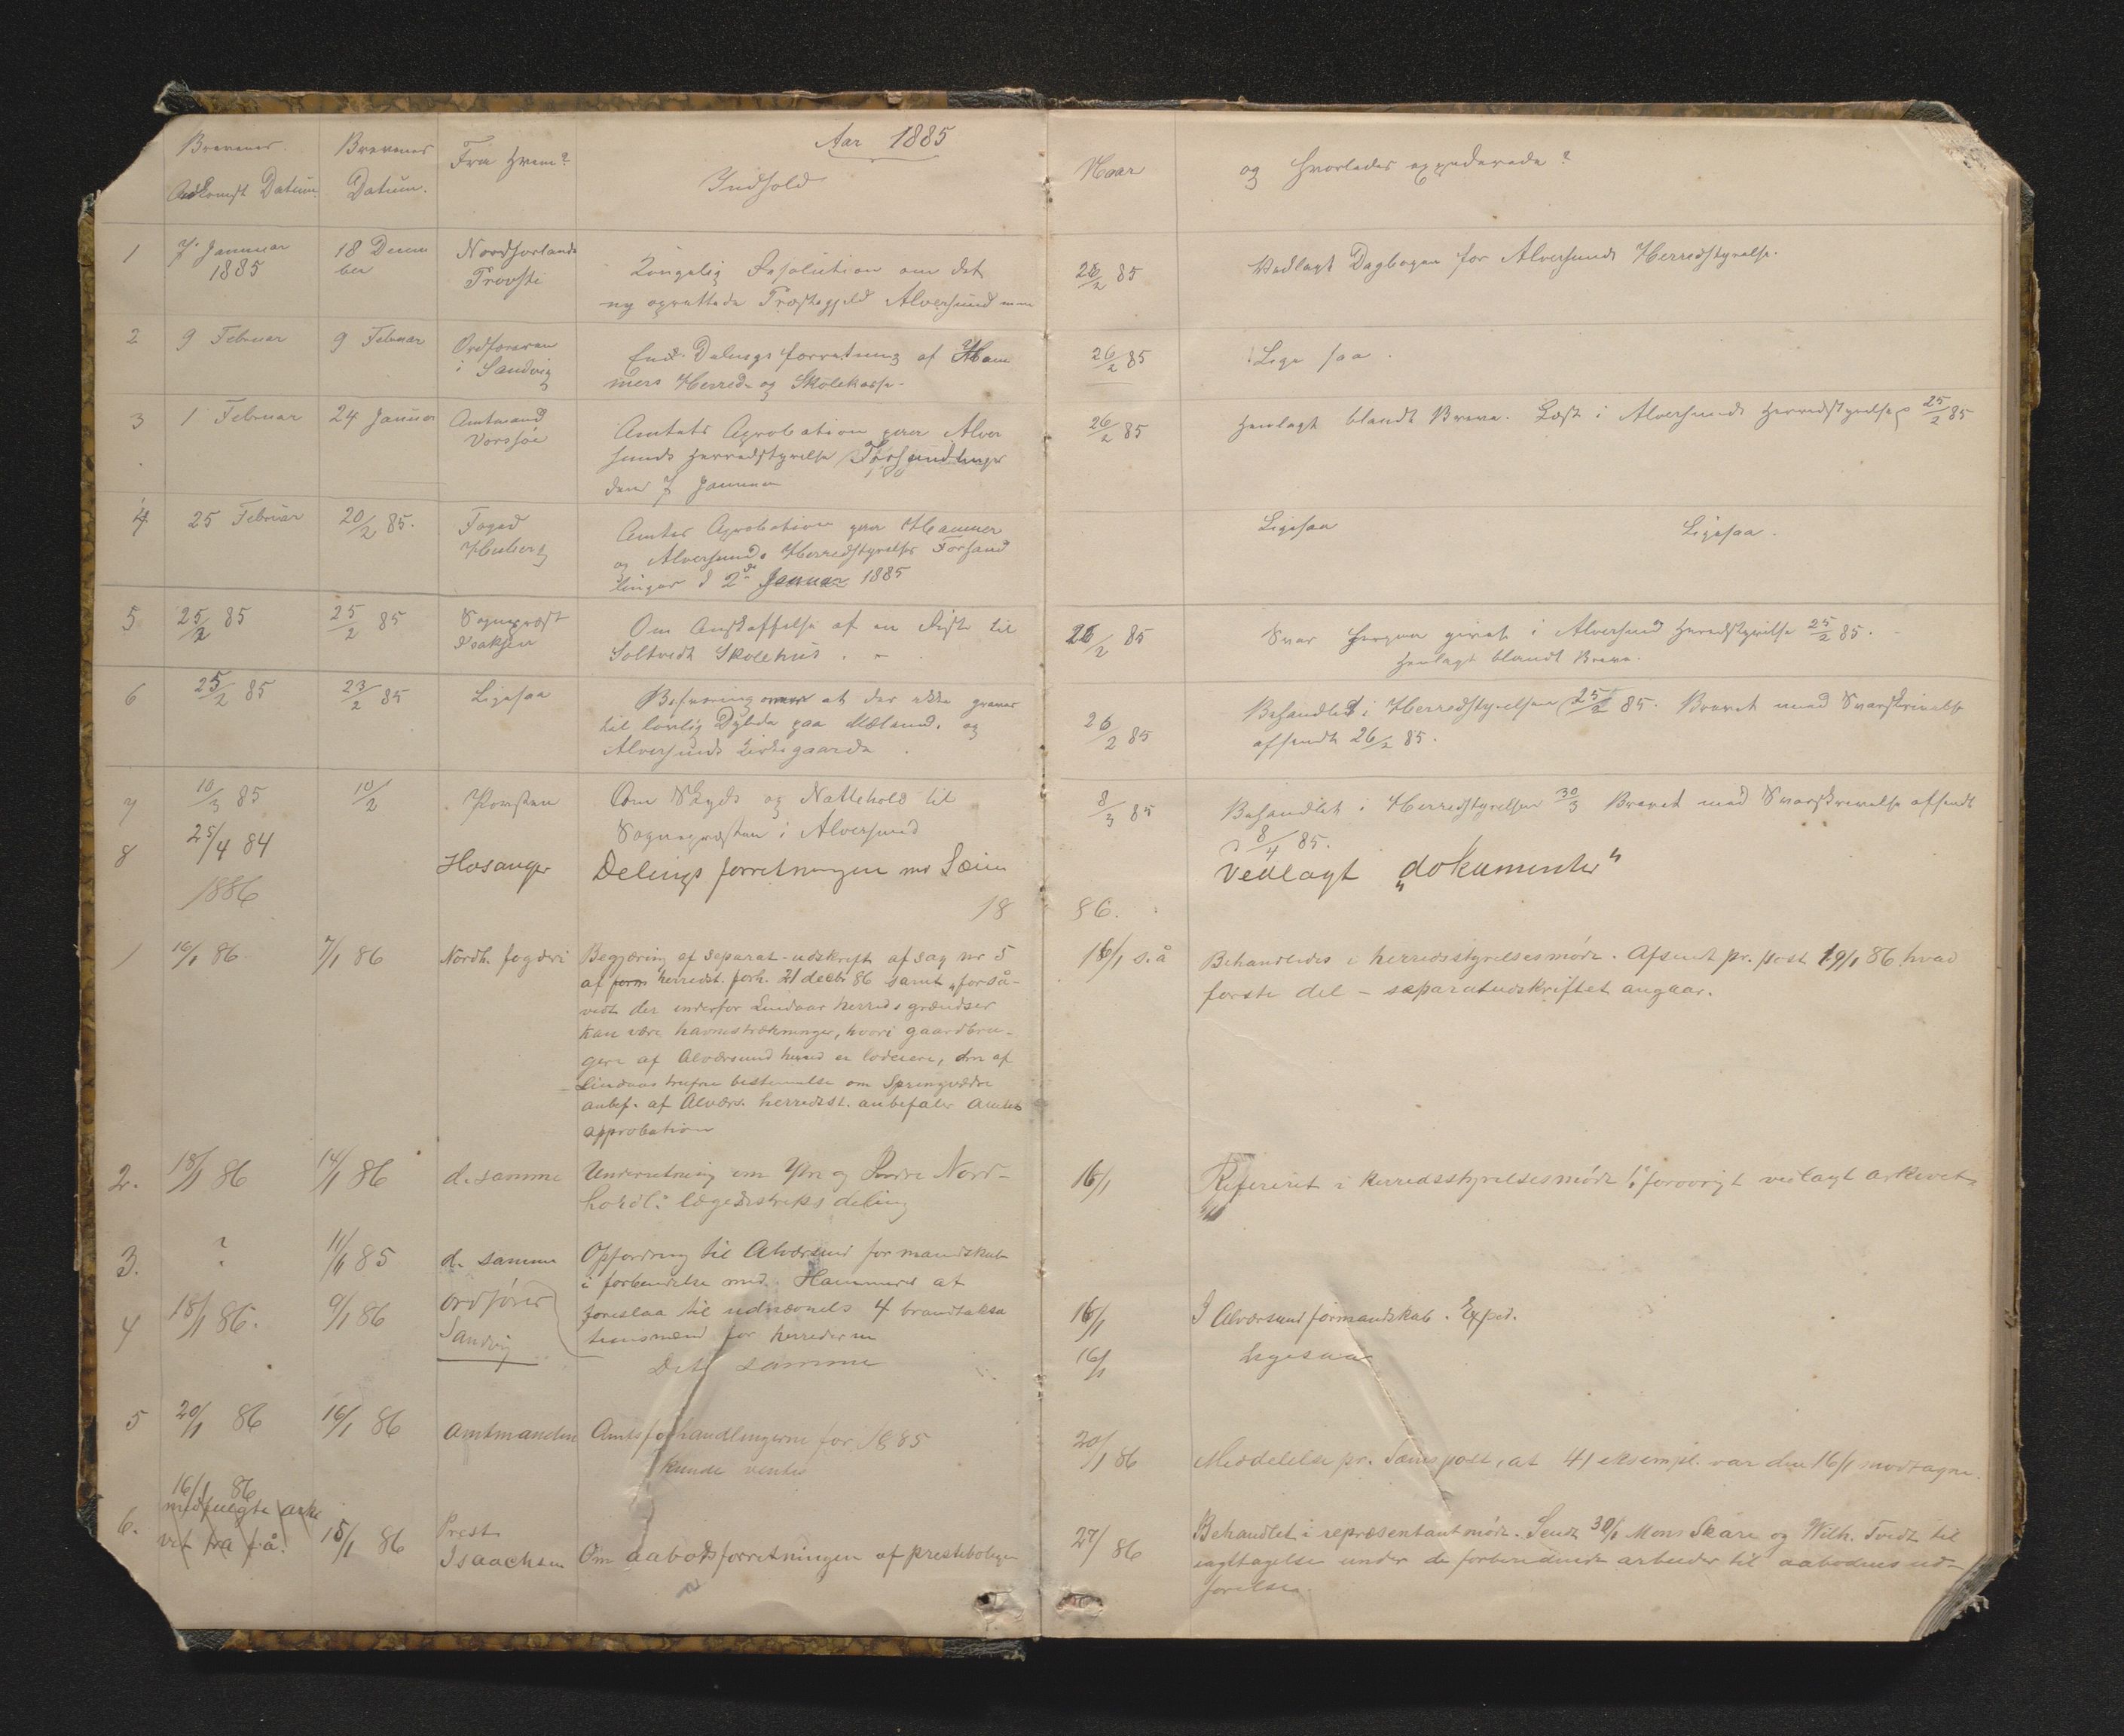 Aar 1885
Brevenes Ankomst Datum
Brevenes Datum.
Fra Hvem?
Indhold
Naar
og hvorledes expederede?
1 7 Januar 1885
18 Decem
ber
Nordhorlands
Provsti
Kongelig Resolution om det
ny oprettede Præstegjeld Alversund
26/2 85
Vedlagt Dagbogen for Alversunds Herredstyrelse.
2 9 Februar
9 Februar
Ordføreren
i Sandvig
Delingsforretning af Ham
mers Herreds og Skolekasse.
26/2 85
Lige saa.
3 1 Februar
24 Januar
Amtmand
Amtets Aprobation paa Alver
sunds Herredstyrelse Forhandlinger
den 7 Januar
26/2 85
Henlagt blandt Breve. Læst i Alversunds Herredstyrelse 25/2 85
4 25 Februar
20/2 85.
Foged
Amtets Aprobation paa Hammer
og Alversunds Herredstyrelses Forhand
linger d 2den Januar 1885
Ligesaa
Ligesaa.
5 25/2 85
25/2 85
Sognepræst
Isaksen
Om Anskaffelse af en Kiste til
Soltvedt Skolehus.
26/2 85
Svar herpaa givet i Alversund Herredstyrelse 25/2 85.
Henlagt blandt Breve.
6 25/2 85
23/2 85
Ligesaa
at der ikke graves
til lovlig Dybde paa Mælands og
Alversunds Kirkegaarde.
26/2 85
Behandlet i Herredstyrelsen 25/2 85. Brevet med Svarskrivelse
afsendt 26/2 85.
7 10/3 85
10/2
Om Skyds og Nattehold til
Sognepræsten i Alversund
8/3 85
Behandlet i Herredstyrelsen 30/3 Brevet med Svarskrivelse afsendt
d 8/4 85.
8 25/4 84
Hosanger
Delings forretningen
Vedlagt „dokumenter"
1886
18 86.
1 16/1 86.
7/1 86
Nordh. fogderi
Begjæring af separat-udskrift af sag nr 5
af form herredst. forh. 21 decbr 86 samt „forså-
vidt der indenfor Lindaas herreds grændser
kan være havnestrækninger, hvori gaardbru-
gere af Alversund herred er lodeiere, den af
Lindaas trufne bestemmelse om Springvædre
anbef. af Alvers. herredsst. anbefales amtets
approbation
16/1 s.å
Behandledes i herredsstyrelsesmøde. Afsendt pr. post 19/1 86 hvad
første del – separatudskriftet angaar.
2. 18/1 86
14/1 86
d. samme
Underretning om Ytre og Indre Nord-
hordl: lægedistrikts deling
16/1
Refereret i herredsstyrelsesmøde, forøvrigt vedlagt arkivet.
3. ?
11/1 85
d. samme
Opfordring til Alversund formandskab
i forbindelse med Hammers at
foreslaa til udnævnels 4 brandtaksa
tionsmænd for herrederne
16/1
I Alversund formandskab. Exped.
4 18/1 86.
9/1 86
Ordfører
Sandvig
Det samme
16/1
Ligesaa
5 20/1 86
16/1 86
Amtmanden
Amtsforhandlingerne for 1885
kunde ventes
20/1 86
Meddelelse pr. Sæims post, at 41 eksempl. var den 16/1 modtagne.
6. 16/1 86
medfulgte arki
vet fra f.å.
15/1 86
Prest
Isaachsen
Om aabodsforretningen af prestebolegen
27/1 86
Behandlet i repræsentantmøde. Sendt 30/1 Mons Skare og Wilh. Tvedt til
iagttagelse under de forberedende arbeider til aabodens ud-
førelse.